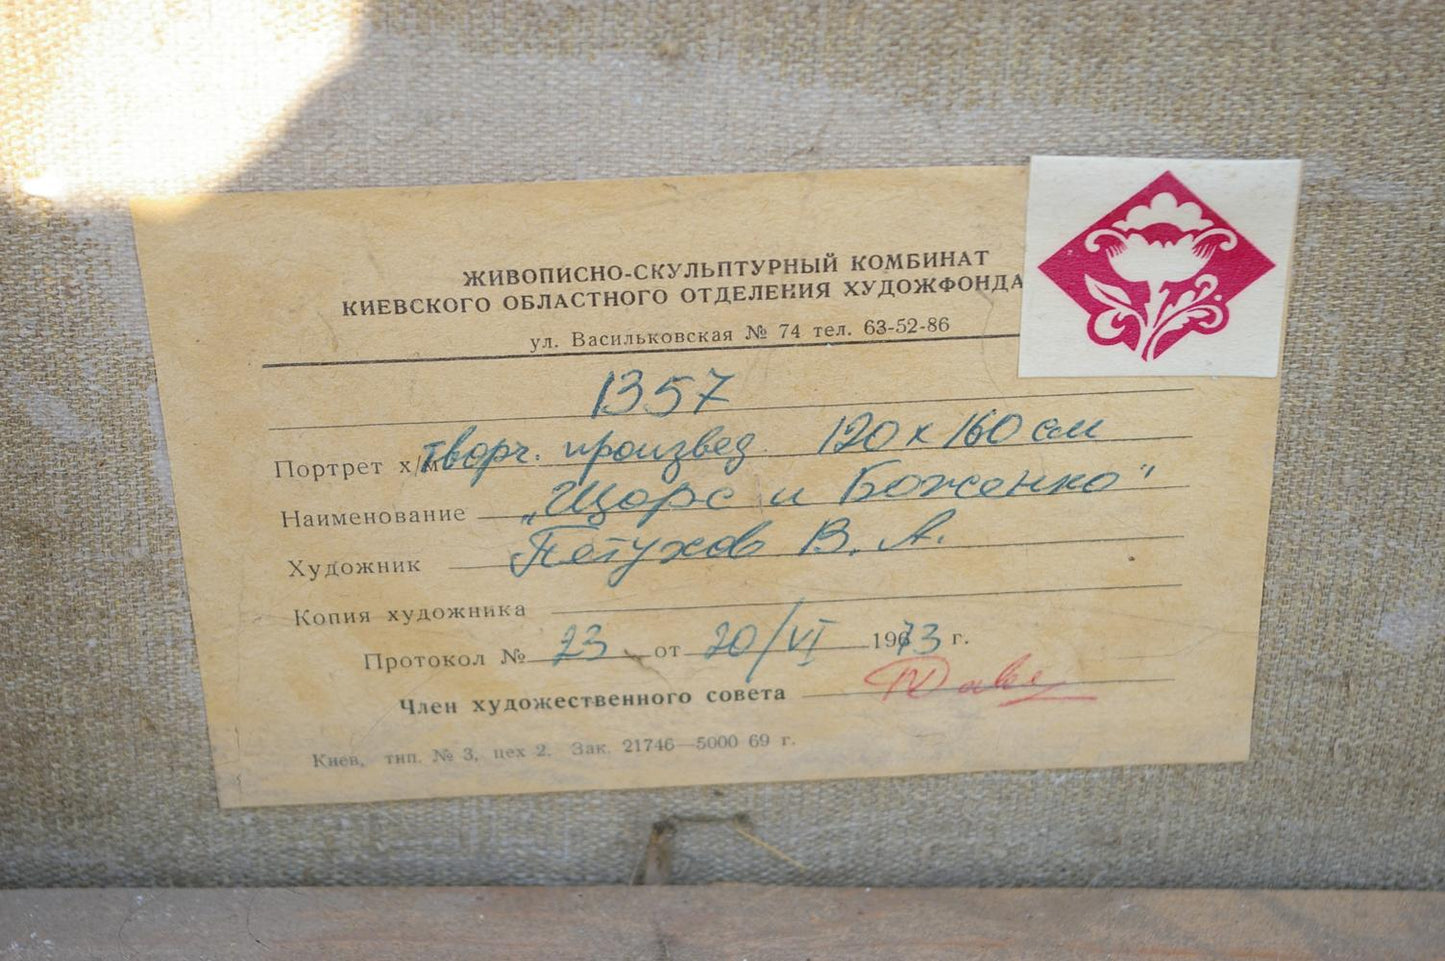 ЖИВОПИСНО-СКУЛЬПТУРНЫЙ КОМБИНАТ
КИЕВСКОГО ОБЛАСТНОГО ОТДЕЛЕНИЯ ХУДОЖФОНДА
ул. Васильковская № 74 тел. 63-52-86
1357
Портрет х/м творч. произвед. 120 х 160 см
Наименование „Щорс и Боженко"
Художник Петухов В. А.
Копия художника
Протокол № 23 от 20/VI 1973 г.
Член художественного совета
Киев, тип. № 3, цех 2. Зак. 21746—5000 69 г.